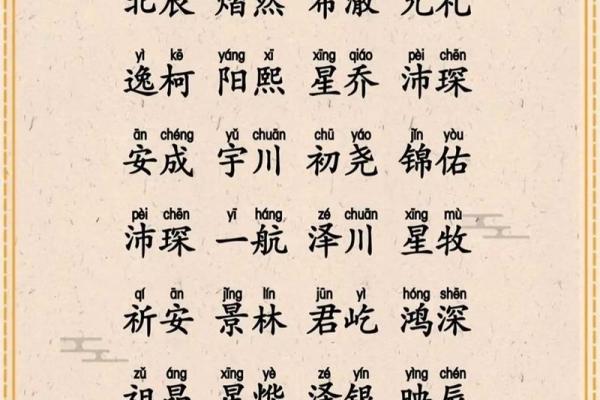 北辰 熠然 希澈 允礼
yì kē yáng xī xīng qiáo pèi chēn
逸柯 阳熙 星乔 沛琛
ān chéng yǔ chuān chū yáo jǐn yòu
安成 宇川 初尧 锦佑
pèi chēn yī háng zé chuān xīng mù
沛琛 一航 泽川 星牧
qí ān jǐng lín jūn yì hóng shēn
祈安 景林 君屹 鸿深
zǔ áng xīng yè zé yín yìng chén
祖昂 星烨 泽银 映辰